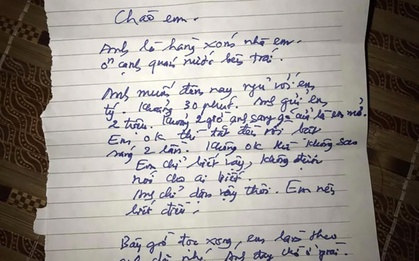 Chào em.
Anh là hàng xóm nhà em.
ở cạnh quán nước bên trái.
Anh muốn đêm nay ngủ với em
tý. Khoảng 30 phút. Anh gửi em
2 triệu. Khoảng 2 giờ anh sang gõ cửa là em mở.
Em ok thì tắt đèn rồi bật
sáng 2 lần. Không ok thì không sao
Em chỉ biết vậy, không được
nói cho ai biết.
Anh chỉ dặn vậy thôi. Em nên
biết điều.
Bây giờ đọc xong, em làm theo
anh nhé. Anh